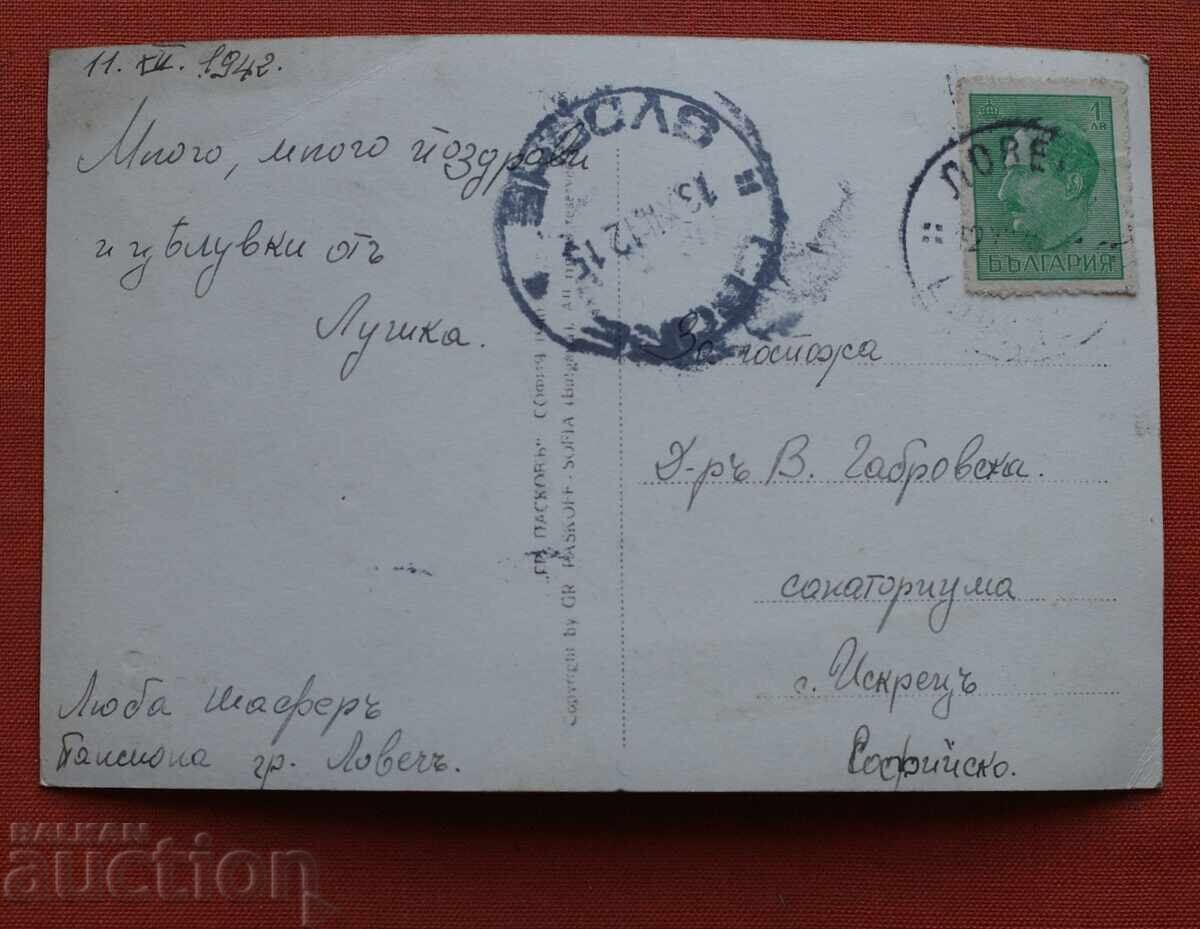 11. XII. 1942.
Много, много поздрави
и цѣлувки отъ
Лушка.
Люба Шаферъ
Пансиона гр. Ловечъ.
„ГР. ПАСКОВЪ" СОФИЯ
Copyright by GR. PASKOFF - SOFIA (Bulgaria). All reserved
SVOGUÉ
13 XII. 12 15
ЛОВЕ
1 ЛВ
БЪЛГАРИЯ
За госпожа
Д-ръ В. Габровска.
санаториума
с. Искрецъ
Софийско.
BALKAN
auction